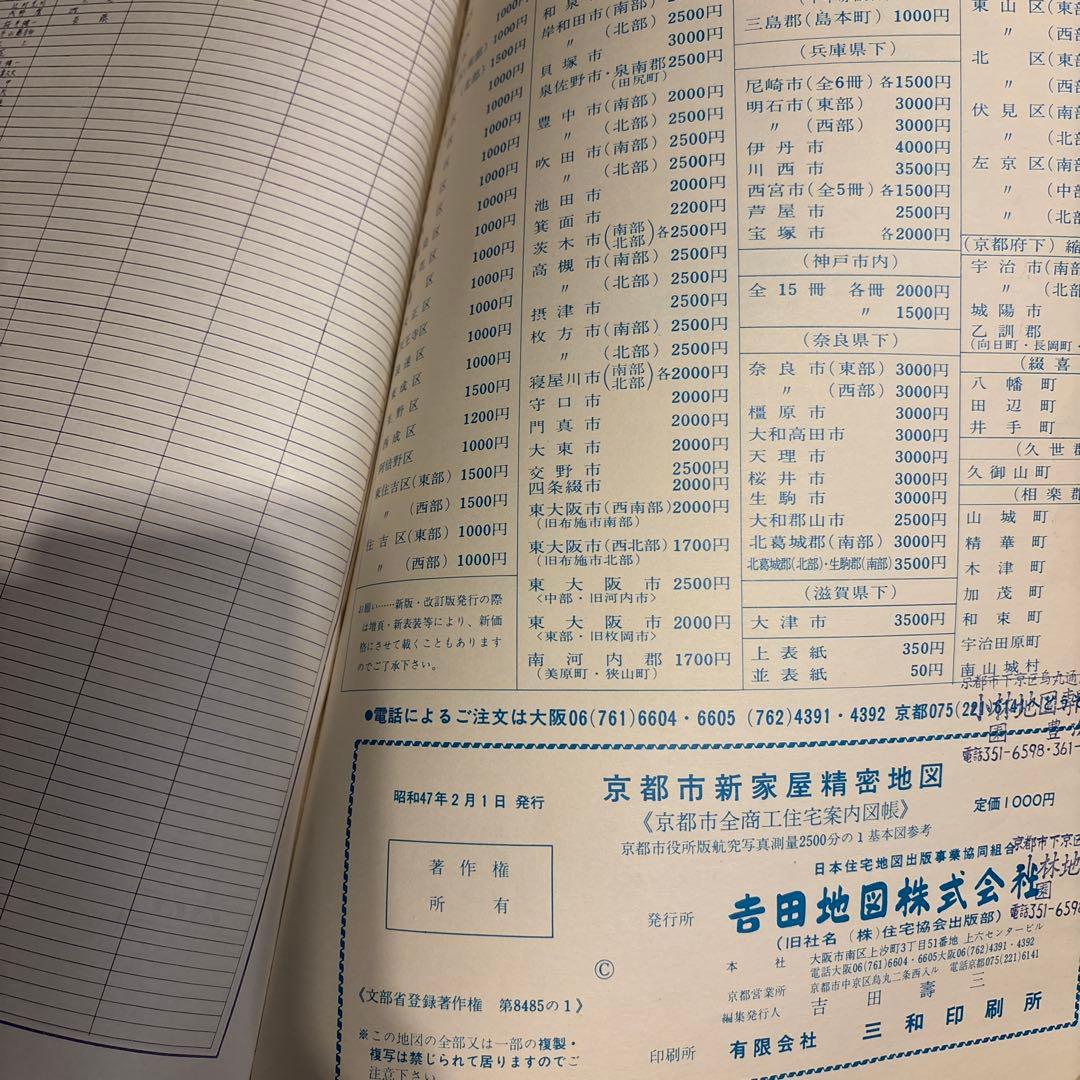 1000円
1000円
1500円
1000円
1000円
1000円
1000円
1000円
1000円
1000円
1000円
1000円
1000円
1000円
1500円
生野区 1200円
西成区 1000円
阿倍野区
東住吉区(東部) 1500円
〃 (西部) 1500円
住吉区(東部) 1000円
〃 (西部) 1000円
お願い……新版・改訂版発行の際
は増頁・新表装等により、新価
格にさせて戴くこともあります
のでご了承下さい。
岸和田市(南部) 2500円
〃 (北部) 2500円
貝塚市 3000円
泉佐野市・泉南郡 2500円
(田尻町)
豊中市(南部) 2000円
〃 (北部) 2500円
吹田市(南部) 2500円
〃 (北部) 2500円
池田市 2000円
箕面市 2200円
茨木市(南部 北部)各2500円
高槻市(南部) 2500円
〃 (北部) 2500円
摂津市 2500円
枚方市(南部) 2500円
〃 (北部) 2500円
寝屋川市(南部 北部)各2000円
守口市 2000円
門真市 2000円
大東市 2000円
交野市 2500円
四条畷市 2000円
東大阪市(西南部) 2000円
(旧布施市南部)
東大阪市(西北部) 1700円
(旧布施市北部)
東大阪市 2500円
<中部・旧河内市>
東大阪市 2000円
<東部・旧枚岡市>
南河内郡 1700円
(美原町・狭山町)
三島郡(島本町) 1000円
(兵庫県下)
尼崎市(全6冊)各1500円
明石市(東部) 3000円
〃 (西部) 3000円
伊丹市 4000円
川西市 3500円
西宮市(全5冊)各1500円
芦屋市 2500円
宝塚市 各2000円
(神戸市内)
全15冊 各冊 2000円
〃 1500円
(奈良県下)
奈良市(東部) 3000円
〃 (西部) 3000円
橿原市 3000円
大和高田市 3000円
天理市 3000円
桜井市 3000円
生駒市 3000円
大和郡山市 2500円
北葛城郡(南部) 3000円
北葛城郡(北部)・生駒郡(南部) 3500円
(滋賀県下)
大津市 3500円
上表紙 350円
並表紙 50円
東山区(東部
〃 (西部
北区(東部
〃 (西部
伏見区(南部
〃 (北部
左京区(南部
〃 (中部
〃 (北部
(京都府下)縮
宇治市(南部
〃 (北部
城陽市
乙訓郡
(向日町・長岡町・
(綴喜
八幡町
田辺町
井手町
(久世郡
久御山町
(相楽郡
山城町
精華町
木津町
加茂町
和束町
宇治田原町
南山城村
●電話によるご注文は大阪06(761)6604・6605 (762)4391・4392 京都075(221)6141
京都市下京区烏丸通
小林地図
電話351-6598・361-
昭和47年2月1日 発行
著作権
所有
《文部省登録著作権 第8485の1》
※この地図の全部又は一部の複製・
複写は禁じられて居りますのでご
注意下さい。
京都市新家屋精密地図
《京都市全商工住宅案内図帳》
定価1000円
京都市役所版航究写真測量2500分の1基本図参考
日本住宅地図出版事業協同組合
発行所 吉田地図株式会社
(旧社名 (株)住宅協会出版部)
京都市下京区
小林地
図
電話351-6598
本社 大阪市南区上汐町3丁目51番地 上六センタービル
電話大阪06(761)6604・6605大阪06(762)4391・4392
京都営業所 京都市中京区烏丸二条西入ル 電話京都075(221)6141
編集発行人 吉田壽三
©
印刷所 有限会社 三和印刷所